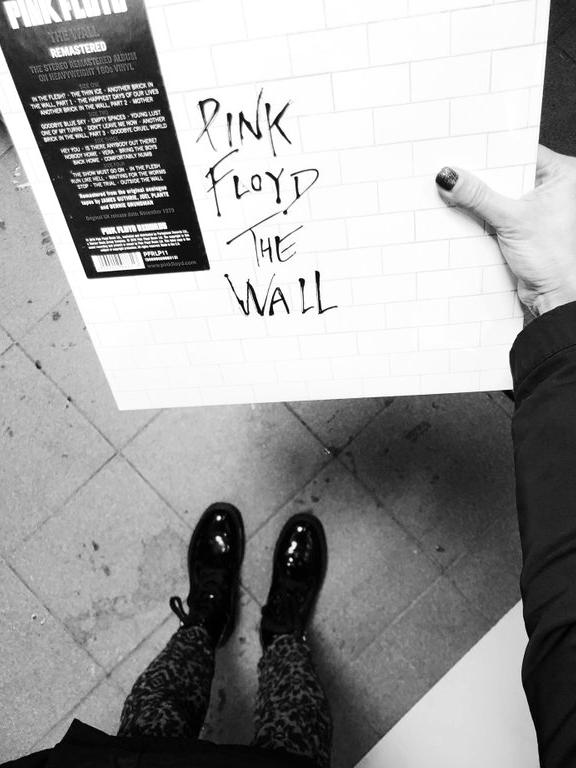 PINK FLOYD
THE WALL
REMASTERED
THE STEREO REMASTERED ALBUM
ON HEAVYWEIGHT 180g VINYL
IN THE FLESH? · THE THIN ICE · ANOTHER BRICK IN
THE WALL, PART 1 · THE HAPPIEST DAYS OF OUR LIVES
ANOTHER BRICK IN THE WALL, PART 2 · MOTHER
GOODBYE BLUE SKY · EMPTY SPACES · YOUNG LUST
ONE OF MY TURNS · DON'T LEAVE ME NOW · ANOTHER
BRICK IN THE WALL, PART 3 · GOODBYE CRUEL WORLD
HEY YOU · IS THERE ANYBODY OUT THERE?
NOBODY HOME · VERA · BRING THE BOYS
BACK HOME · COMFORTABLY NUMB
SIDE FOUR
THE SHOW MUST GO ON · IN THE FLESH
RUN LIKE HELL · WAITING FOR THE WORMS
STOP · THE TRIAL · OUTSIDE THE WALL
Remastered from the original analogue
tapes by JAMES GUTHRIE, JOEL PLANTE
and BERNIE GRUNDMAN
Original UK release date: November 1979
PINK FLOYD RECORDS
PFRLP11
www.pinkfloyd.com
PINK
FLOYD
THE
WALL